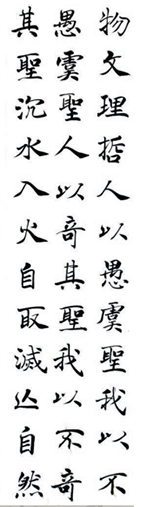 物文理哲人以愚虞聖我以不
愚虞聖人以奇其聖我以不奇
其聖沉水入火自取滅亡自然